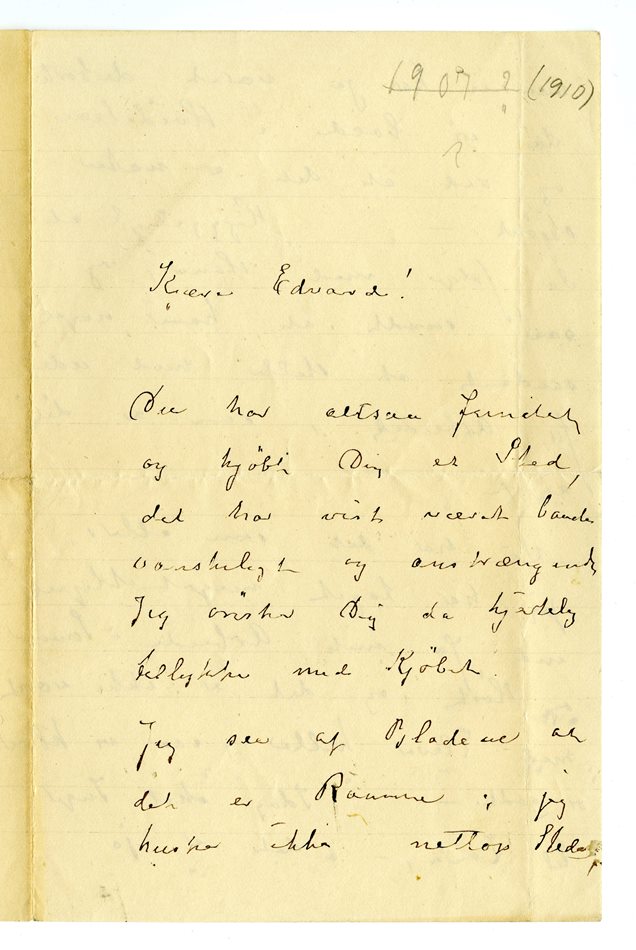 1909 ? (1910)
?
Kjære Edvard!
Du har altsaa fundet
og kjöbt Dig et Sted,
det har vist været baade
vanskeligt og anstrængende
Jeg önsker Dig da hjertelig
tillykke med Kjöbet.
Jeg ser af Bladene at
det er Ramme; jeg
husker ikke netop Stedet